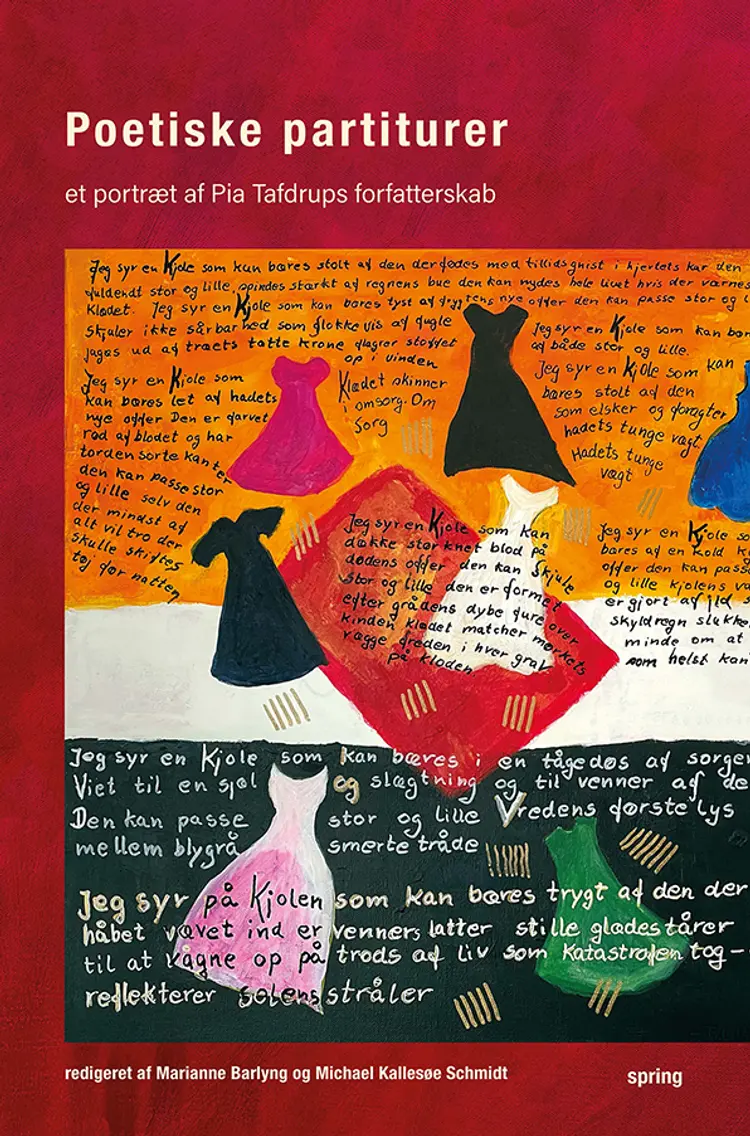 Poetiske partiturer
et portræt af Pia Tafdrups forfatterskab
Jeg syr en Kjole som kan bæres stolt af den der fødes med tillidsgnist i hjertets kar den
fuldendt stor og lille, spindes stærkt af regnens bue den kan nydes hele livet hvis der værnes
Klædet. Jeg syr en Kjole som kan bæres tyst af frygtens nye offer den kan passe stor og
skjuler ikke sårbarhed som flokkevis af fugle
jages ud af træets tætte krone flagrer stoffet
op i vinden
Klædet skinner
i omsorg. Om
Sorg
Jeg syr en Kjole som kan bær
af både stor og lille.
Jeg syr en Kjole som kan
bæres stolt af den
som elsker og foragter
hadets tunge vagt
Hadets tunge
vægt
Jeg syr en Kjole som
kan bæres let af hadets
nye offer Den er farvet
rød af blodet og har
torden sorte kanter
den kan passe stor
og lille selv den
der mindst af
alt vil tro der
skulle skiftes
tøj før natten
Jeg syr en Kjole som kan
dække størknet blod på
dødens offer den kan skjule
stor og lille den er formet
efter grådens dybe fure over
kinden klædet matcher mørkets
vægge freden i hver grav
på kloden
Jeg syr en Kjole so
bæres af en kold k
offer den kan pass
og lille kjolens va
er gjort af ild s
skyldregn slukke
minde om at
som helst kan
Jeg syr en Kjole som kan bæres i en tågedøs af sorgen
Viet til en sjæl og slægtning og til venner af de
Den kan passe stor og lille Vredens første lys
mellem blygrå smerte tråde
Jeg syr på Kjolen som kan bæres trygt af den der
håbet vævet ind er venners latter stille glædestårer
til at vågne op på trods af liv som Katastrofen tog -
reflekterer solens stråler
redigeret af Marianne Barlyng og Michael Kallesøe Schmidt
spring